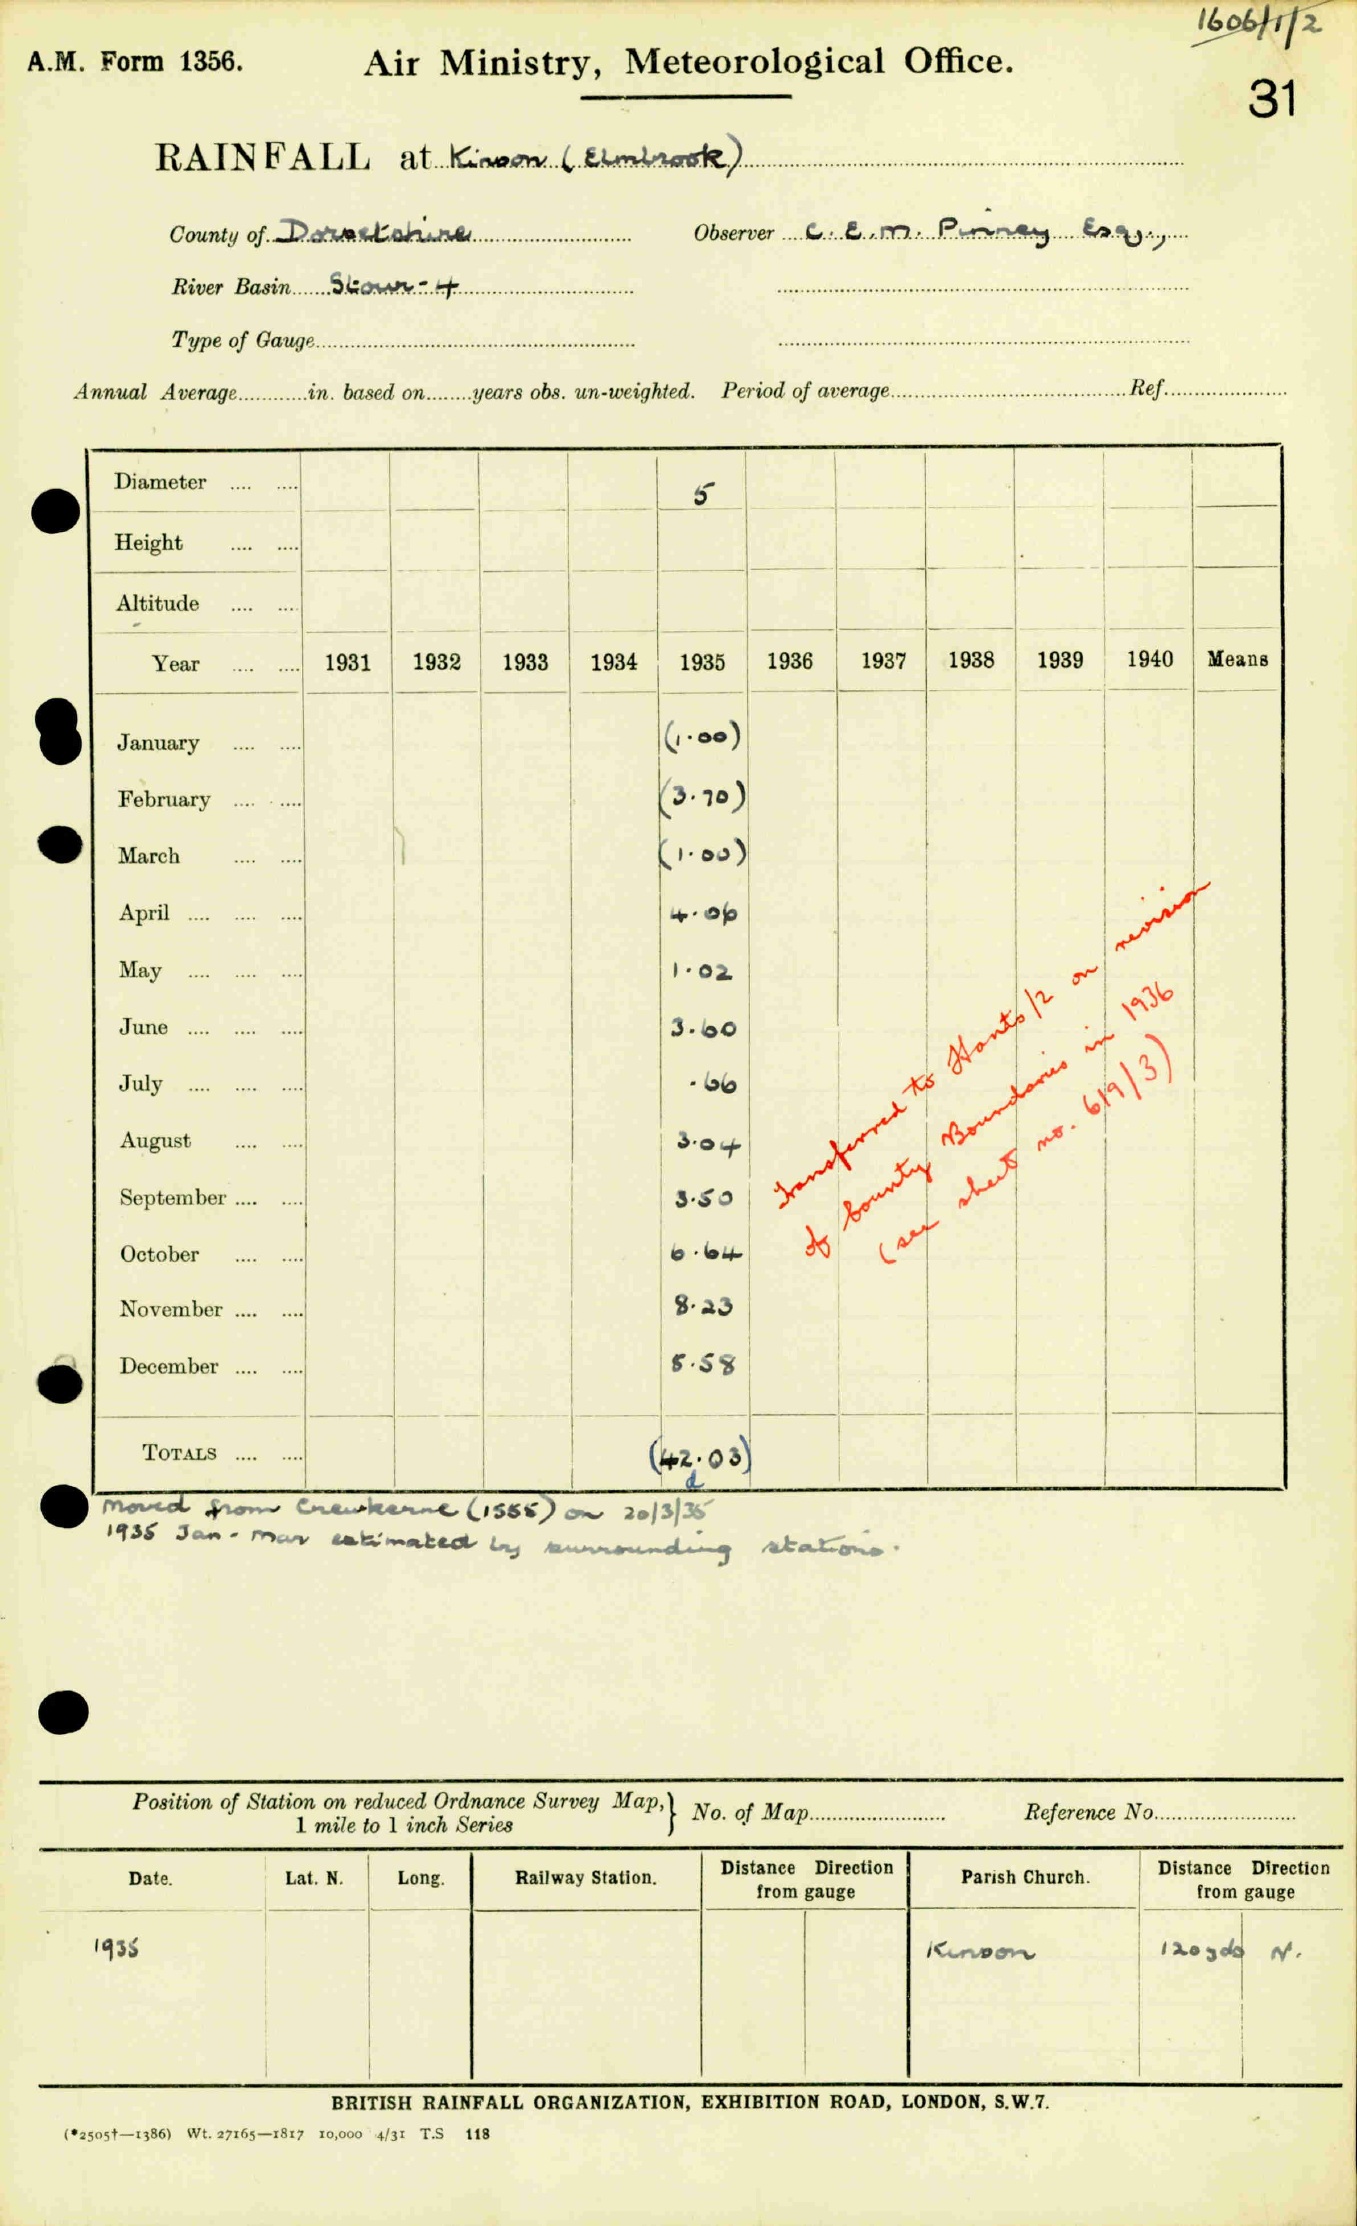 1606/1/2
A.M. Form 1356. Air Ministry, Meteorological Office.
31
RAINFALL at Kinson (Elmbrook)
County of Dorsetshire Observer C. E. M. Pinney Esq.,
River Basin Stour - 4
Type of Gauge
Annual Average in. based on years obs. un-weighted. Period of average Ref.
Diameter 5
Height
Altitude
Year 1931 1932 1933 1934 1935 1936 1937 1938 1939 1940 Means
January (1.00)
February (3.70)
March (1.00)
April 4.06
May 1.02
June 3.60
July .66
August 3.04
September 3.50
October 6.64
November 8.23
December 5.58
TOTALS (42.03)
d
Transferred to Hants/2 on revision
of County Boundaries in 1936
(see sheet no. 619/3)
Moved from Crewkerne (1555) on 20/3/35
1935 Jan - Mar estimated by surrounding stations.
Position of Station on reduced Ordnance Survey Map, } No. of Map Reference No.
1 mile to 1 inch Series
Date. Lat. N. Long. Railway Station. Distance Direction from gauge Parish Church. Distance Direction from gauge
1935 Kinson 120 yds N.
BRITISH RAINFALL ORGANIZATION, EXHIBITION ROAD, LONDON, S.W.7.
(*2505†—1386) Wt. 27165—1817 10,000 4/31 T.S 118